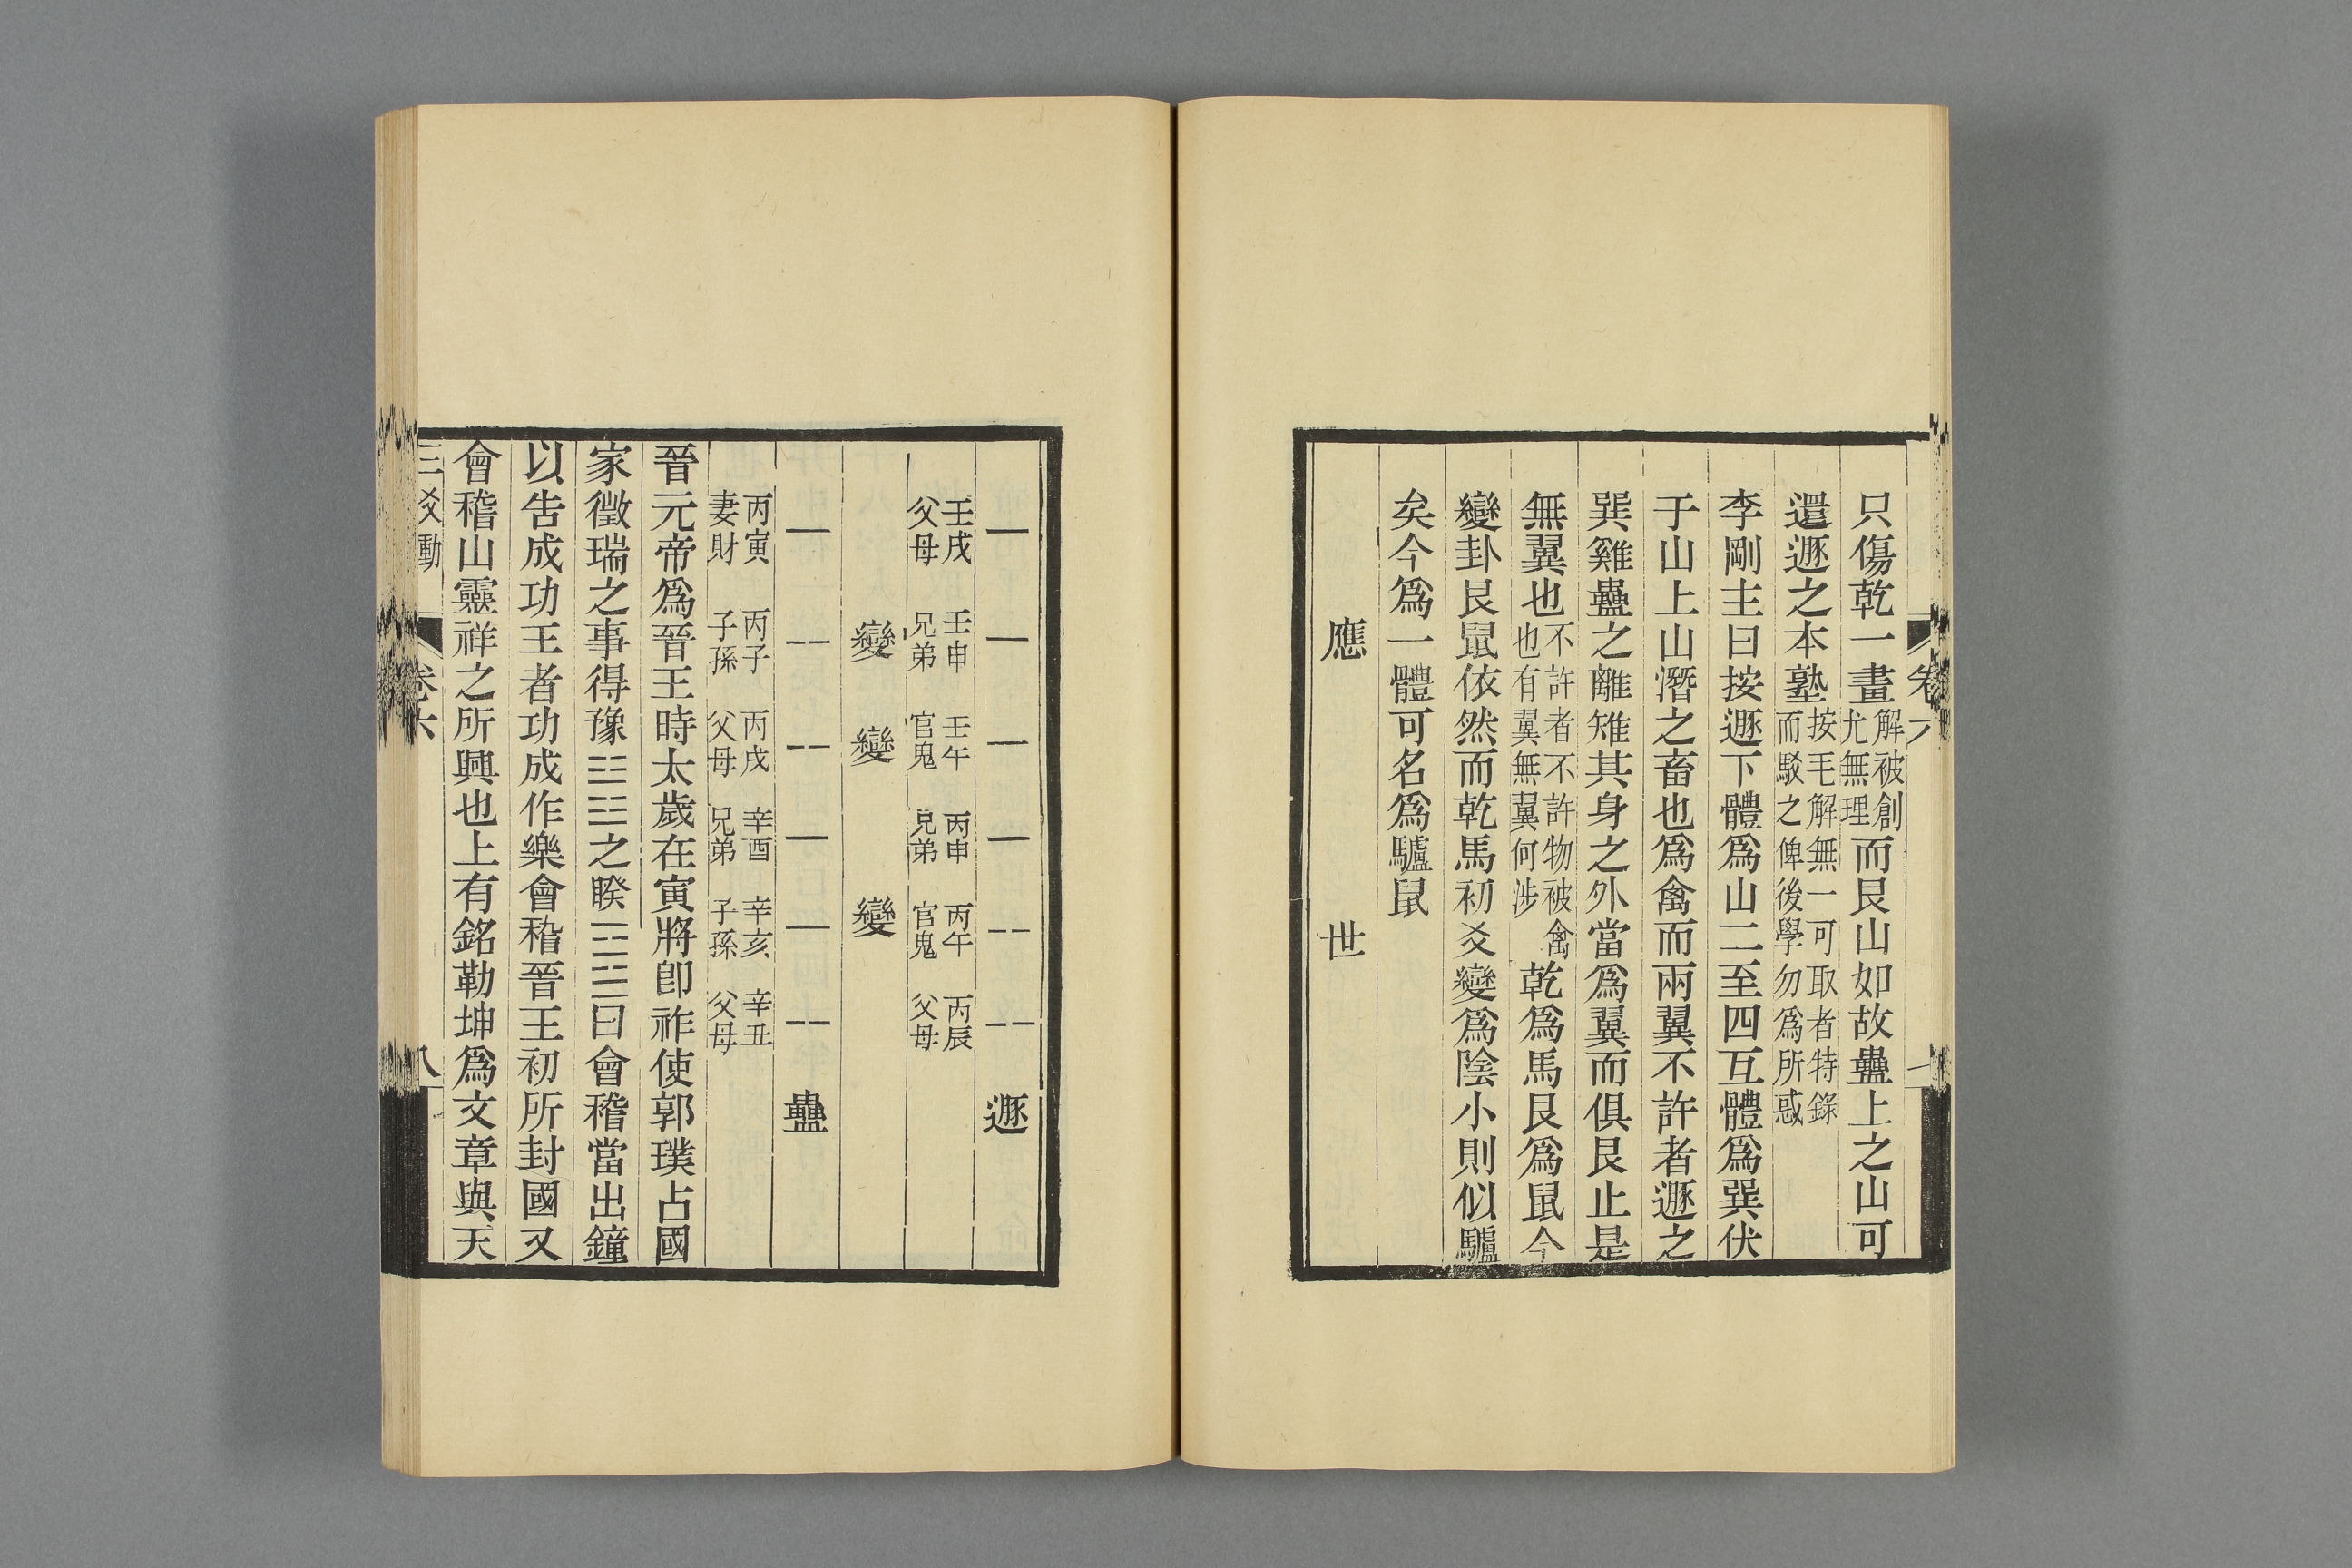 只傷乾一畫解被創尤無理而艮山如故蠱上之山可
還遯之本塾按毛解無一可取者特錄而駁之俾後學勿爲所惑
李剛主曰按遯下體爲山二至四互體爲巽伏
于山上山潛之畜也爲禽而兩翼不許者遯之
巽雞蠱之離雉其身之外當爲翼而俱艮止是
無翼也不許者不許物被禽也有翼無翼何涉乾爲馬艮爲鼠今
變卦艮鼠依然而乾馬初爻變爲陰小則似驢
矣今爲一體可名爲驢鼠
應 世
遯
壬戌父母 壬申兄弟 壬午官鬼 丙申兄弟 丙午官鬼 丙辰父母
變 變 變
蠱
丙寅妻財 丙子子孫 丙戌父母 辛酉兄弟 辛亥子孫 辛丑父母
晉元帝爲晉王時太歲在寅將卽祚使郭璞占國
家徵瑞之事得豫☳☷之睽☲☱曰會稽當出鐘
以告成功王者功成作樂會稽晉王初所封國又
會稽山靈祥之所興也上有銘勒坤爲文章與天
三爻動 卷六 八